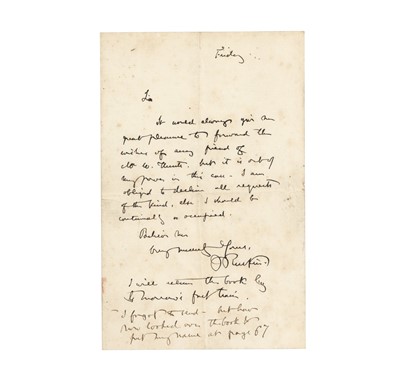 Friday
Sir
It would always give me
great pleasure to forward the
wishes of any friend of
Mr W. Hunts. but it is out of
my power in this case. I am
obliged to decline all requests
of the kind, else I should be
continually so occupied.
Believe me
very sincerely Yours,
J Ruskin.
I will return the book by
tomorrow's fast train.
I forgot to send – but have
now looked over the book &
put my name at page 67